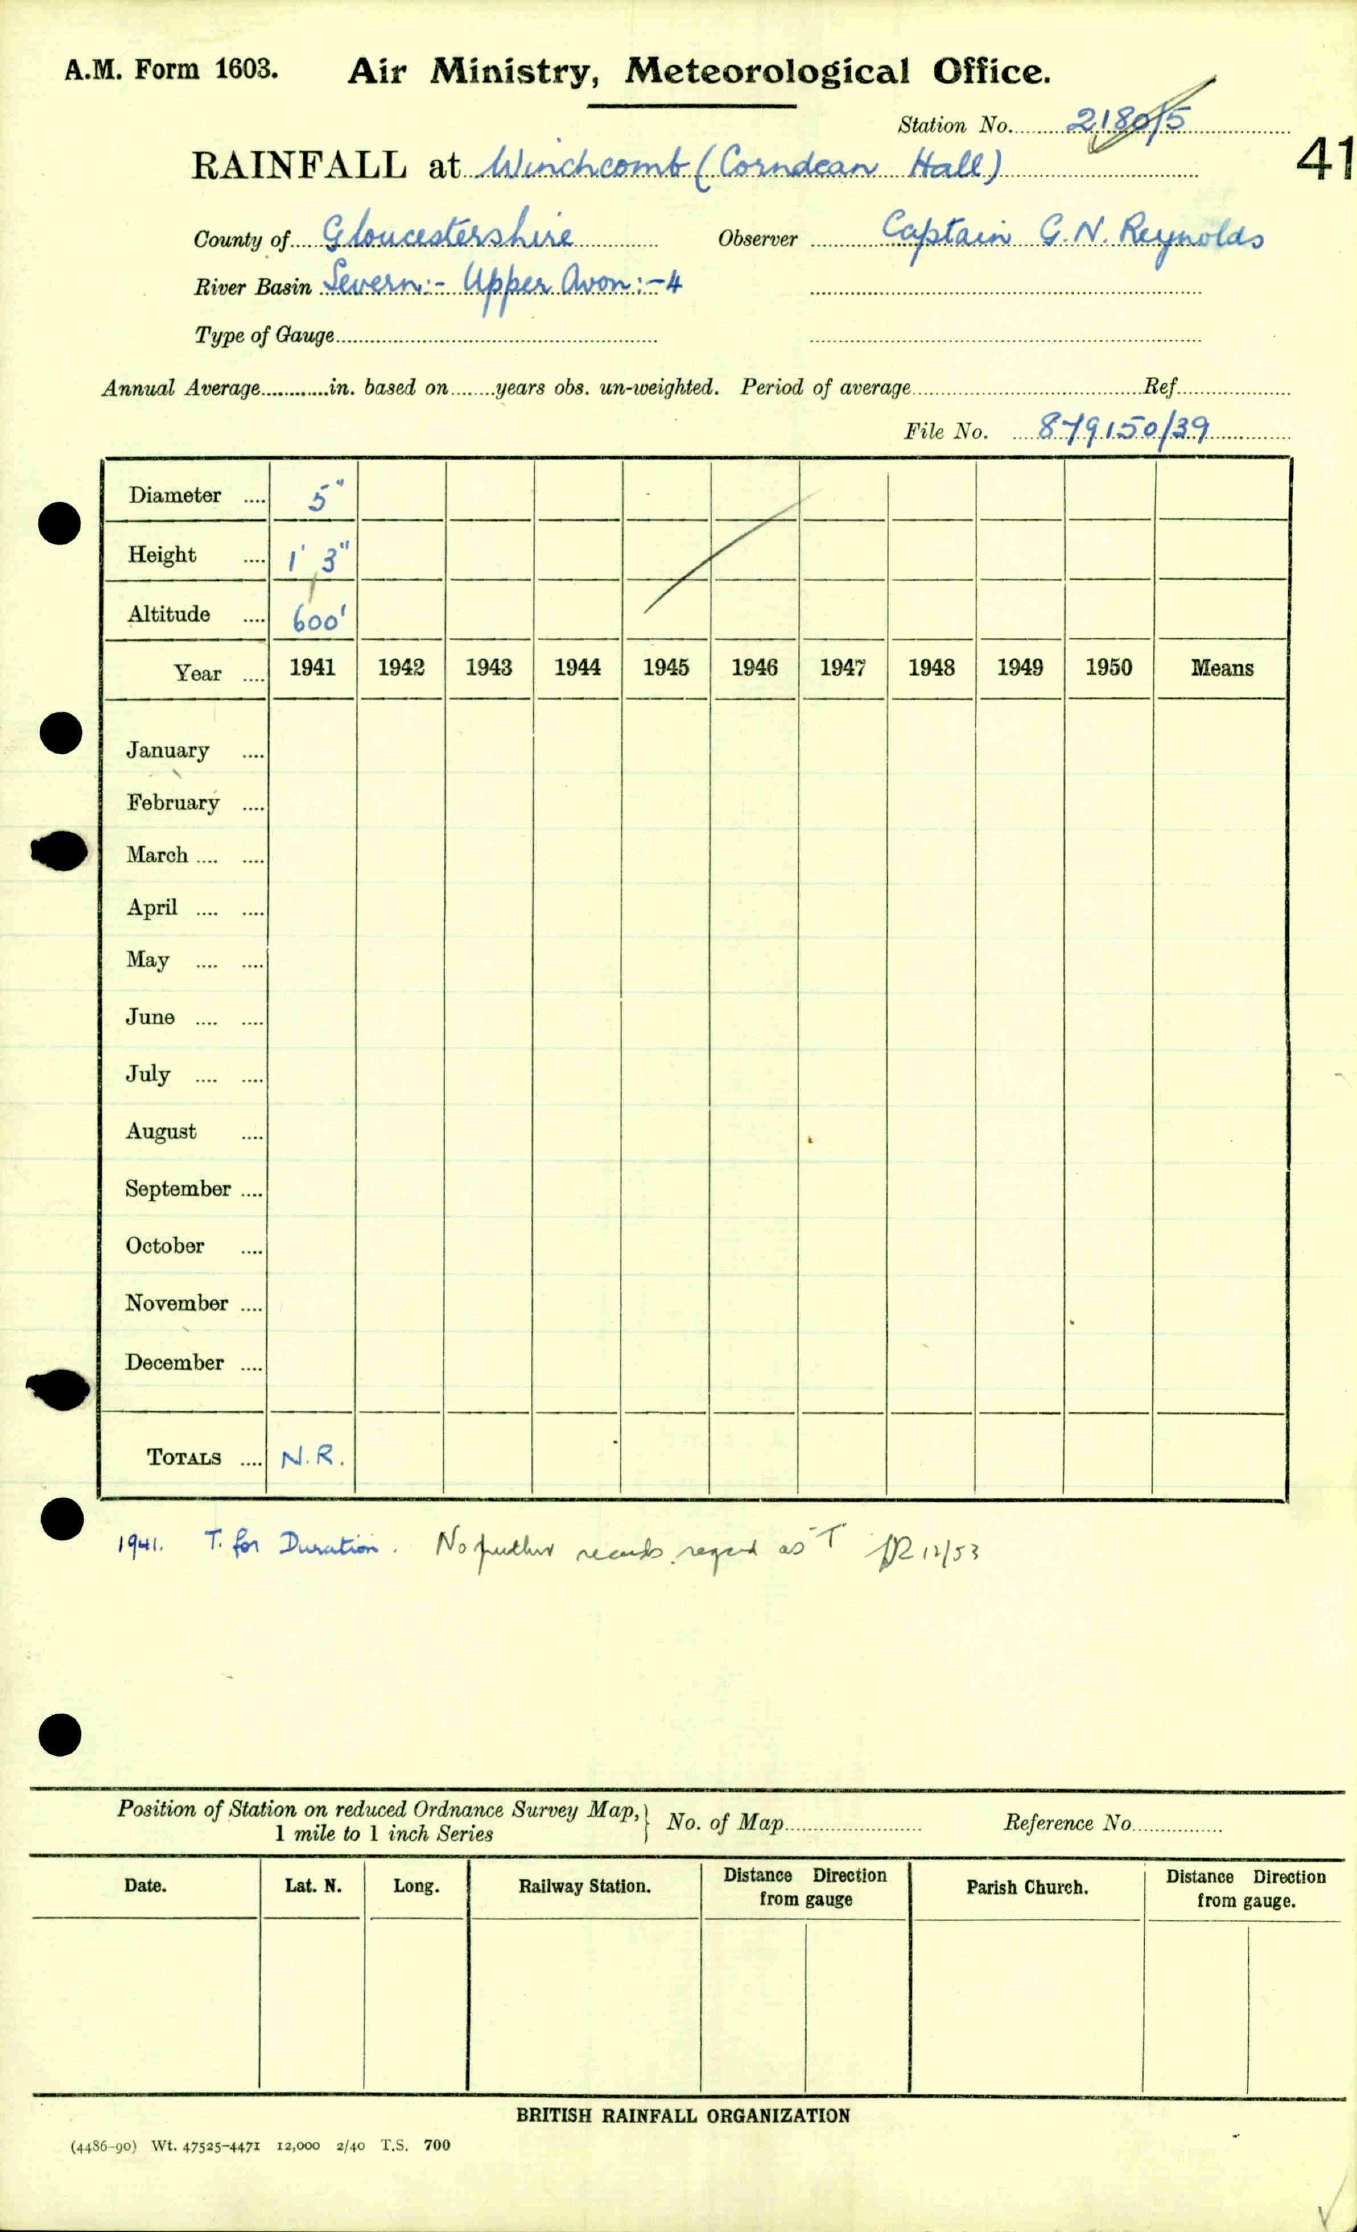 A.M. Form 1603. Air Ministry, Meteorological Office.
Station No. 2180/5
41
RAINFALL at Winchcomb (Corndean Hall)
County of Gloucestershire Observer Captain G.N. Reynolds
River Basin Severn:- Upper Avon:-4
Type of Gauge
Annual Average in. based on years obs. un-weighted. Period of average Ref
File No. 879150/39
Diameter .... 5"
Height .... 1' 3"
Altitude .... 600'
Year .... 1941 1942 1943 1944 1945 1946 1947 1948 1949 1950 Means
January ....
February ....
March .... ....
April .... ....
May .... ....
June .... ....
July .... ....
August ....
September ....
October ....
November ....
December ....
TOTALS .... N.R.
1941. T. for Duration. No further records regard as T 12/53
Position of Station on reduced Ordnance Survey Map, } No. of Map Reference No.
1 mile to 1 inch Series
Date. Lat. N. Long. Railway Station. Distance Direction from gauge Parish Church. Distance Direction from gauge.
BRITISH RAINFALL ORGANIZATION
(4486-90) Wt. 47525-4471 12,000 2/40 T.S. 700